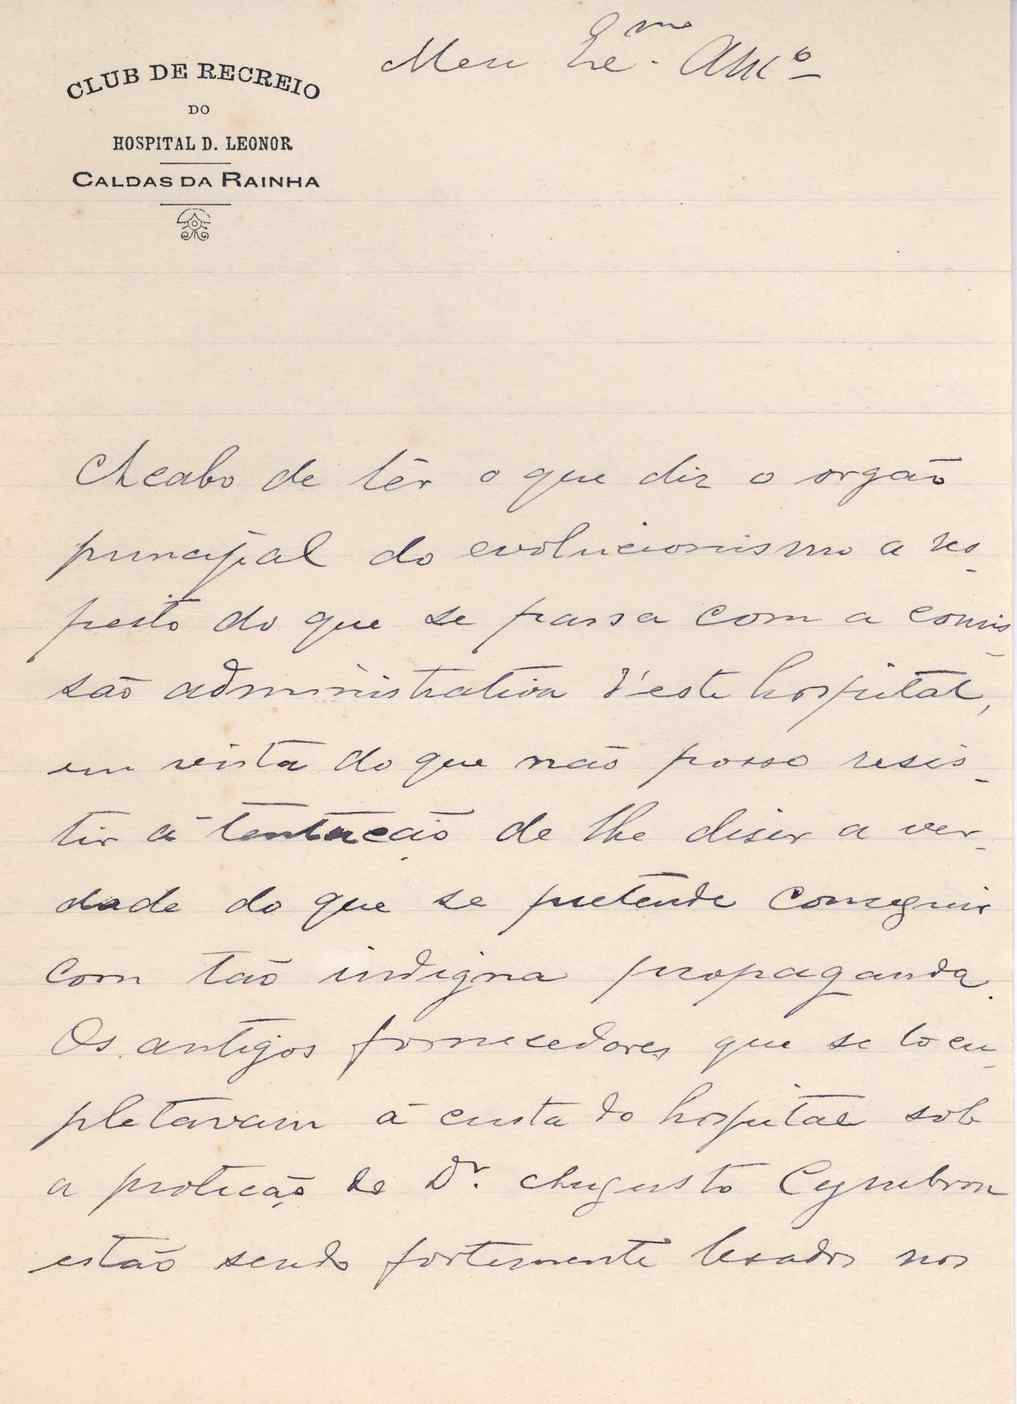 CLUB DE RECREIO
DO
HOSPITAL D. LEONOR
CALDAS DA RAINHA
Meu Am.º
Acabo de lêr o que diz o orgão
principal do evolucionismo a res-
peito do que se passa com a comis-
são administrativa d'este hospital,
em vista do que não posso resis-
tir á tentação de lhe diser a ver-
dade do que se pretende conseguir
com tão indigna propaganda.
Os antigos fornecedores que se locu-
pletavam á custa do hospital sob
a proteção do Dr. Augusto Cymbron
estão sendo fortemente lesados nos